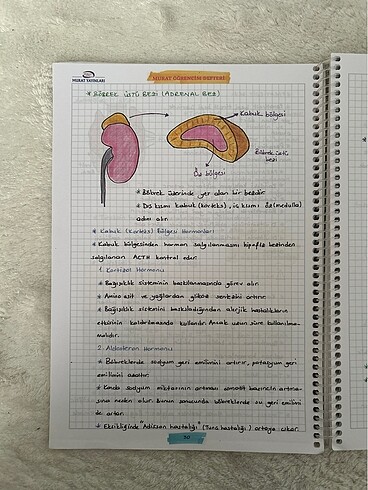 MURAT YAYINLARI
MURAT ÖĞRENCİM DEFTERİ
* BÖBREK ÜSTÜ BEZİ (ADRENAL BEZ)
Kabuk bölgesi
Böbrek üstü
bezi
Öz bölgesi
* Böbrek üzerinde yer alan bir bezdir.
* Dış kısmı kabuk (korteks), iç kısmı öz (medulla)
adını alır.
* Kabuk (Korteks) Bölgesi Hormonları
* Kabuk bölgesinden hormon salgılanmasını hipofiz bezinden
salgılanan ACTH kontrol eder.
1. Kortizol Hormonu
* Bağışıklık sisteminin baskılanmasında görev alır.
* Amino asit ve yağlardan glikoz sentezini artırır.
* Bağışıklık sistemini baskıladığından alerjik hastalıkların
etkisinin kaldırılmasında kullanılır. Ancak uzun süre kullanılma-
malıdır.
2. Aldosteron Hormonu
* Böbreklerde sodyum geri emilimini artırır, potasyum geri
emilimini azaltır.
* Kanda sodyum miktarının artması osmotik basıncın artma-
sına neden olur. Bunun sonucunda böbreklerde su geri emilimi
de artar.
* Eksikliğinde "Addison hastalığı" (Tunç hastalığı) ortaya çıkar.
50